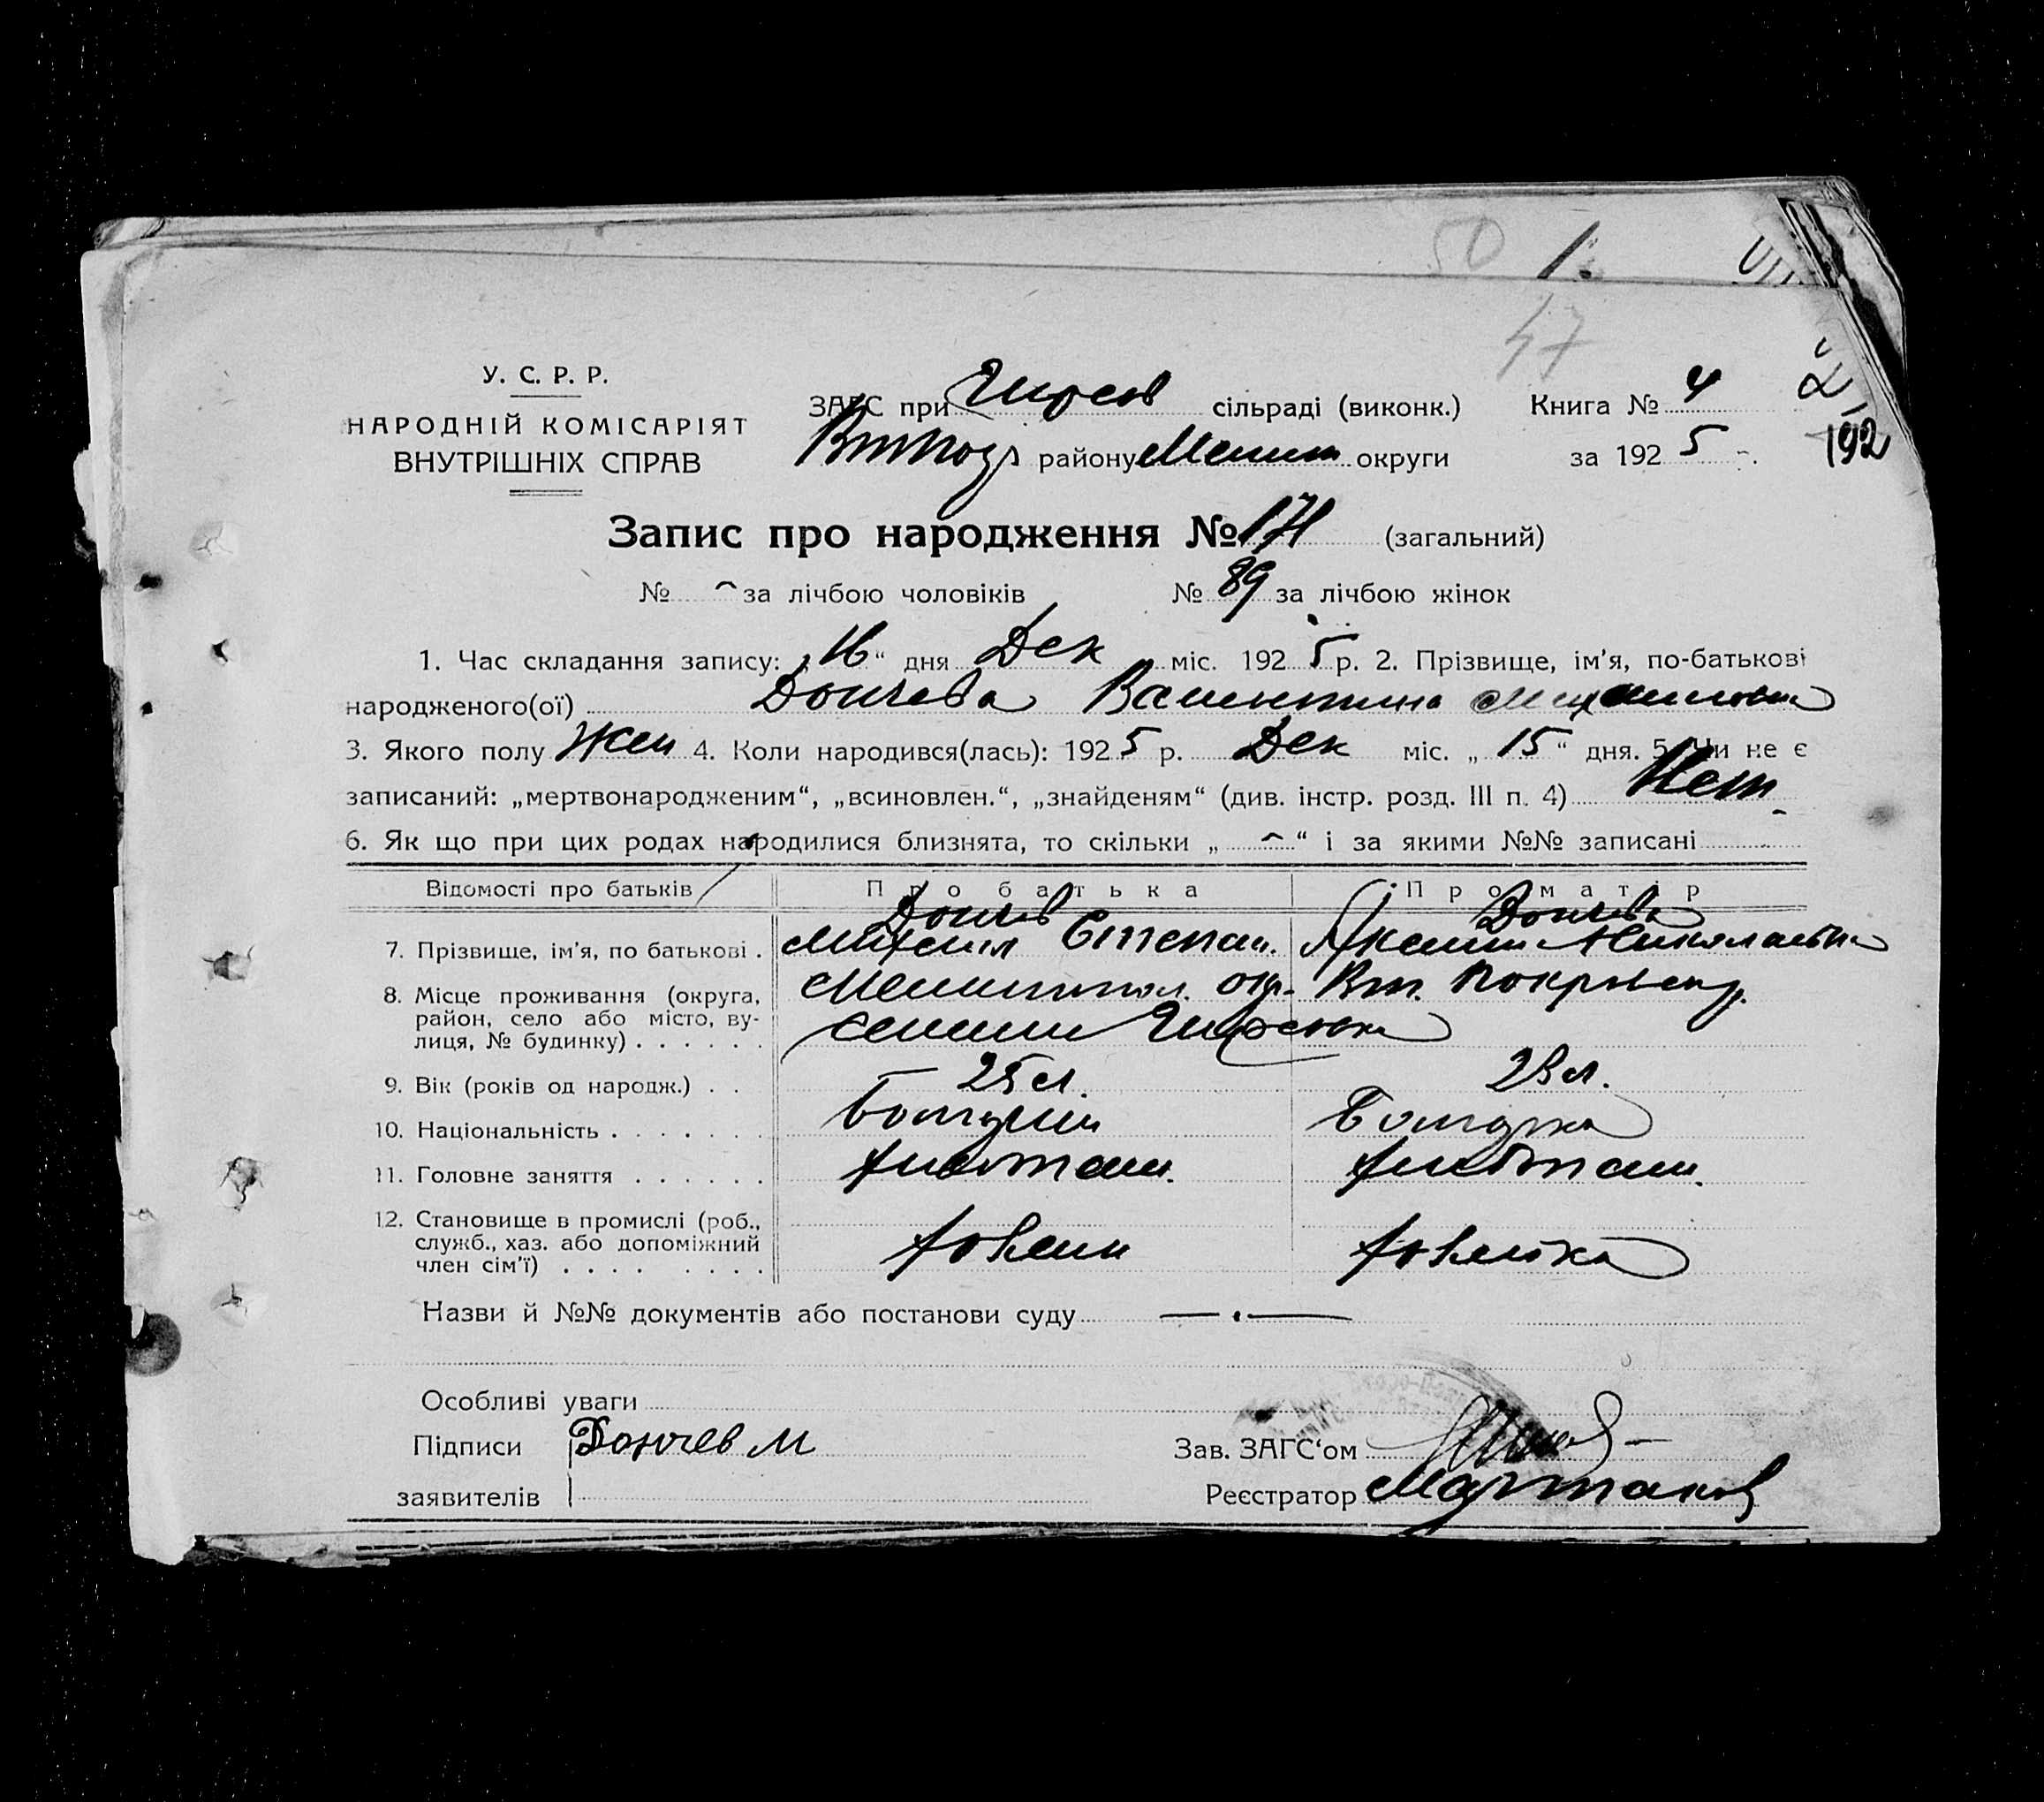 50 1.
47
У. С. Р. Р.
НАРОДНІЙ КОМІСАРІЯТ
ВНУТРІШНІХ СПРАВ
ЗАГС при Гирсов сільраді (виконк.) Книга № 4
району Мелит округи за 192 5 192
Запис про народження № 171 (загальний)
№ за лічбою чоловіків № 89 за лічбою жінок
1. Час складання запису: „16“ дня Дек міс. 192 5 р. 2. Прізвище, ім'я, по-батькові
народженого(ої) Дончева Валентина Михайловна
3. Якого полу Жен 4. Коли народився(лась): 192 5 р. Дек міс. „15“ дня. 5. Чи не є
записаний: „мертвонародженим“, „всиновлен.“, „знайденям“ (див. інстр. розд. III п. 4) Нет
6. Як що при цих родах народилися близнята, то скільки „ “ і за якими №№ записані
Відомості про батьків Про батька Про матір
Дончев Дончева
7. Прізвище, ім'я, по батькові . Михаил Степан. Николаевна
8. Місце проживання (округа, район, село або місто, вулиця, № будинку) . . . . . . Мелитопол. окр. Вт. Покровск р.
селении Гирсовка
9. Вік (років од народж.) . . 25 л. 23 л.
10. Національність . . . . . . . Болгарин Болгарка
11. Головне заняття . . . . . . хлебопаш. хлебопаш.
12. Становище в промислі (роб., служб., хаз. або допоміжний член сім'ї) . . . . . . . . хозяин хозяйка
Назви й №№ документів або постанови суду — . —
Особливі уваги
Підписи Дончев М Зав. ЗАГС‘ом
заявителів Реєстратор